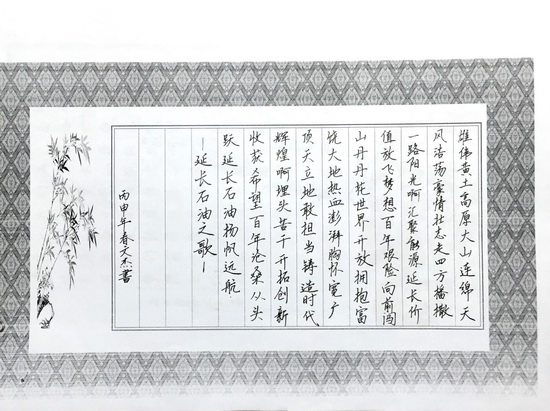 雄伟黄土高原大山连绵天
风浩荡豪情壮志走四方播撒
一路阳光啊汇聚能源延长价
值放飞梦想百年艰险向前闯
山丹丹花世界开放拥抱富
饶大地热血澎湃胸怀宽广
顶天立地敢担当铸造时代
辉煌啊埋头苦干开拓创新
收获希望百年沧桑从头
跃延长石油扬帆远航
—延长石油之歌—
丙申年春 書